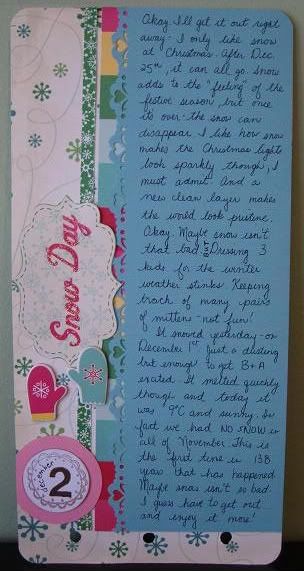 Okay I'll get it out right
away - I only like snow
at Christmas. After Dec.
25th, it can all go. Snow
adds to the "feeling" of the
festive season, but once
it's over the snow can
disappear. I like how snow
makes the Christmas lights
look sparkly though, I
must admit. And a
new clean layer makes
the world look pristine.
Okay. Maybe snow isn't
that bad. Dressing 3
kids for the winter
weather stinks. Keeping
track of many pairs
of mittens - not fun!
It snowed yesterday - on
December 1st. Just a dusting
but enough to get B+A
excited. It melted quickly
though and today it
was 9°C and sunny. In
fact we had NO SNOW in
all of November. This is
the first time in 138
years that has happened.
Maybe snow isn't so bad.
I guess have to get out
and enjoy it more!
Snow Day
december
2